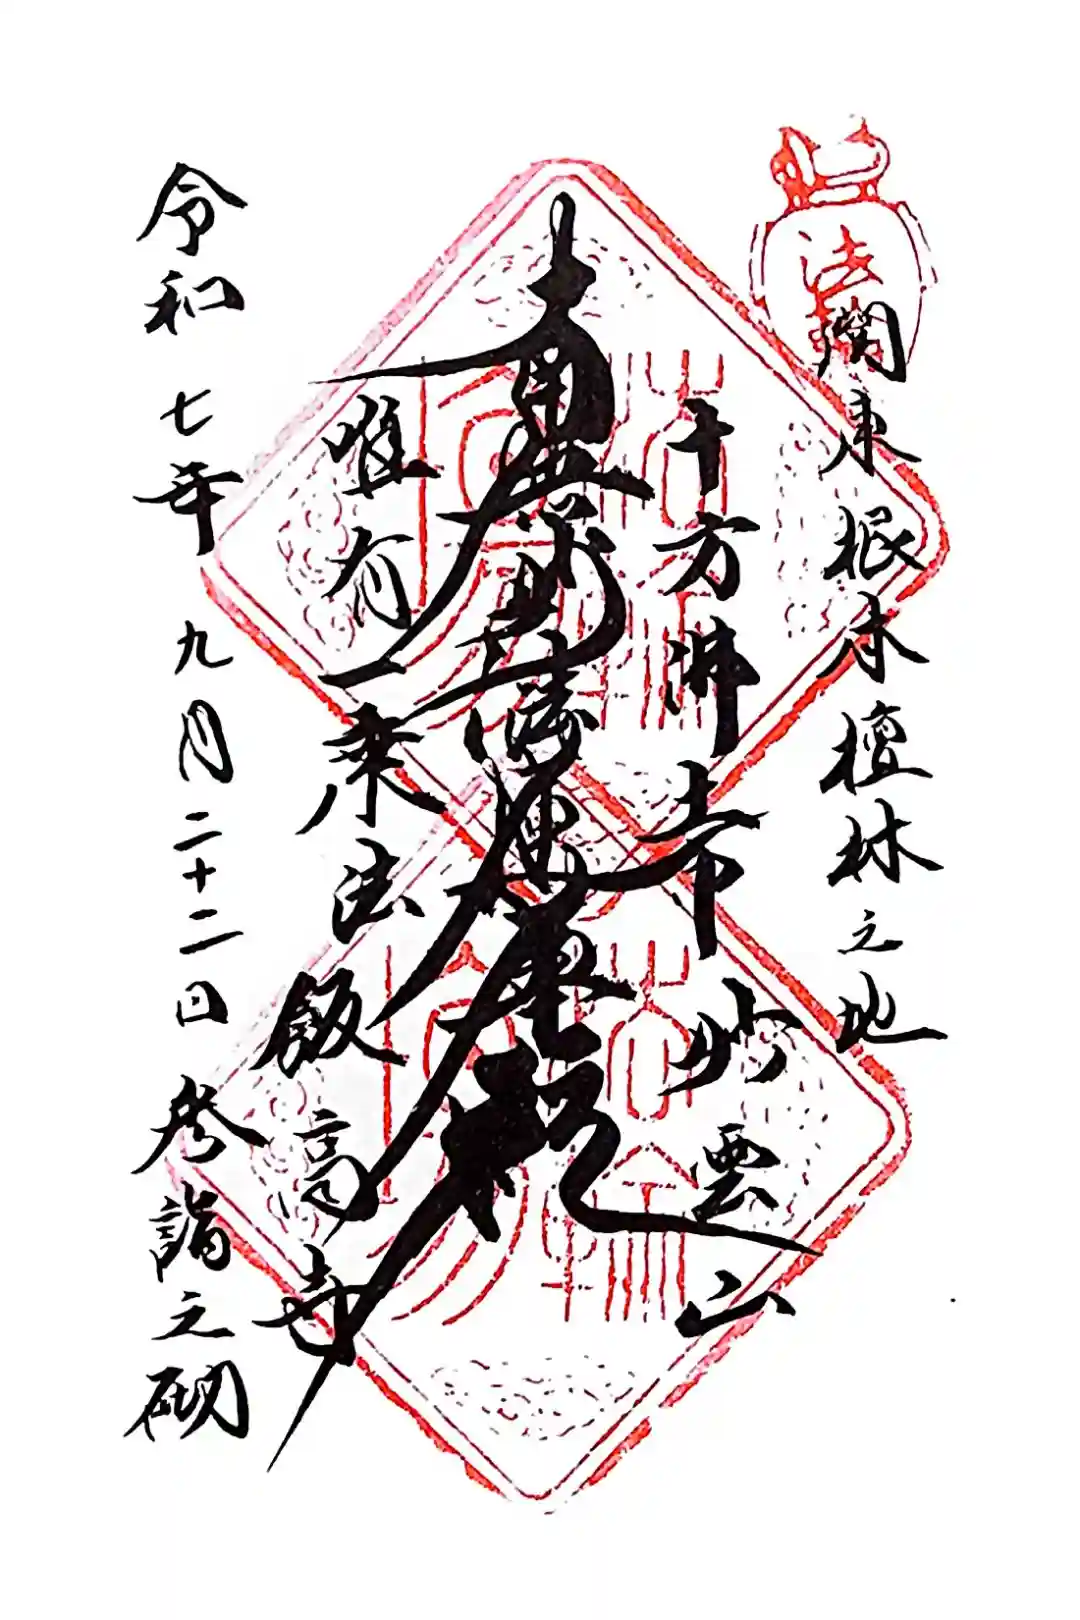 関東根本檀林之地
十方佛土中 妙雲山
南無妙法蓮華経
唯有一乗法 飯高寺
令和七年九月二十二日 参詣之砌
法